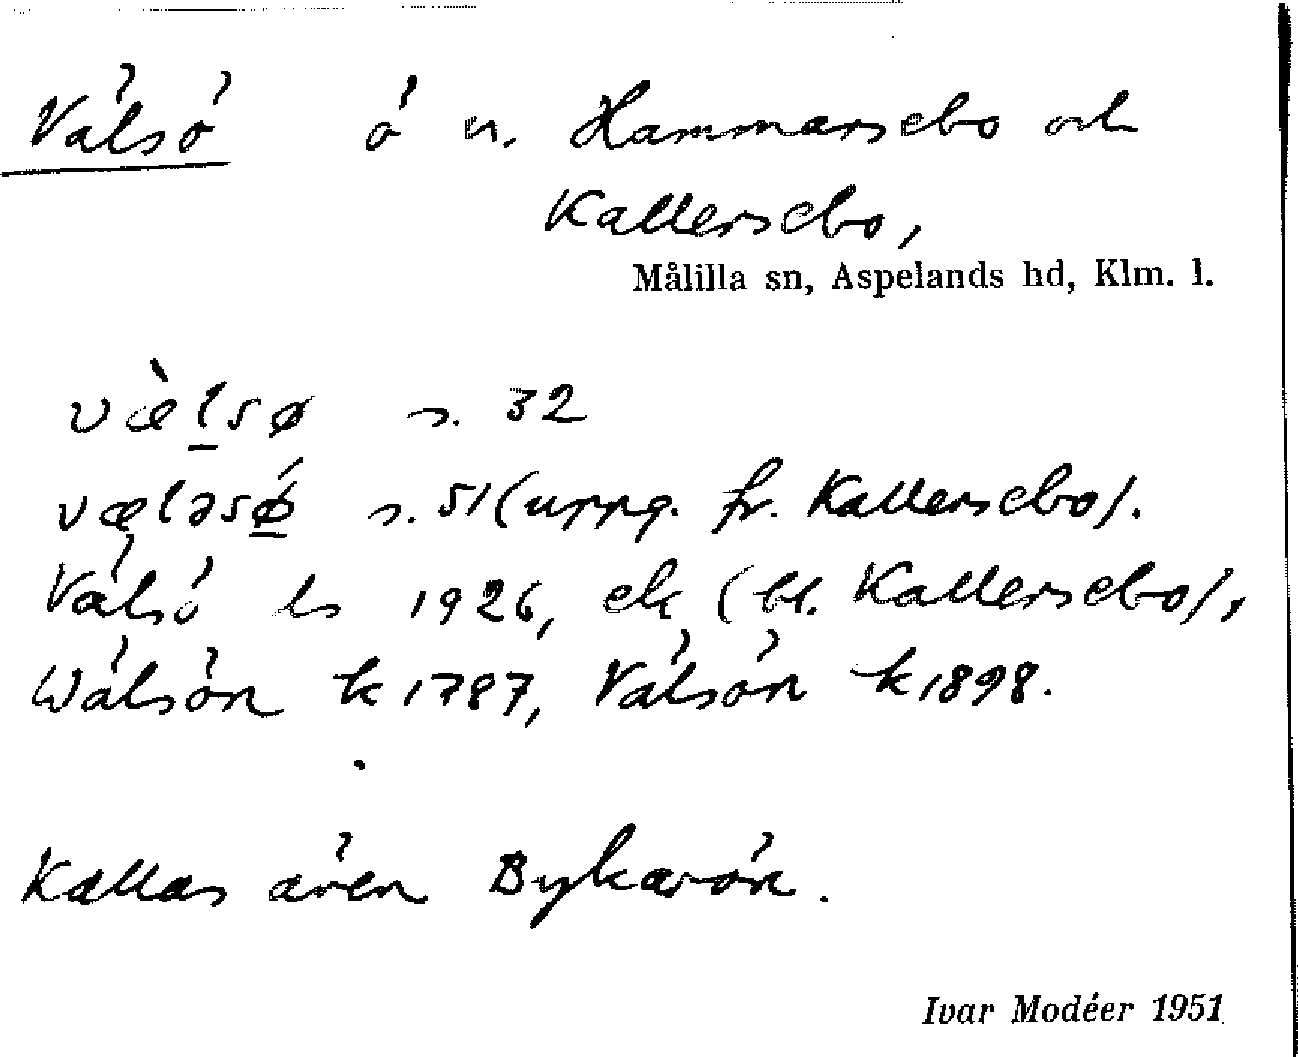 Välsö ö n. Hammarsebo och
Kallersebo,
Målilla sn, Aspelands hd, Klm. l.
væ̀l̲sø s. 32
væləsǿ̲ s. 51 (uppg. fr. Kallersebo).
Välsö ls 1926, ek (bl. Kallersebo),
Wälsön k 1787, Välsön k 1898.
Kallas även Bykavön.
Ivar Modéer 1951